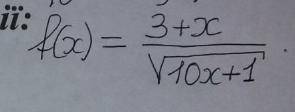 ii: f(x) = (3+x)/√(10x+1) .